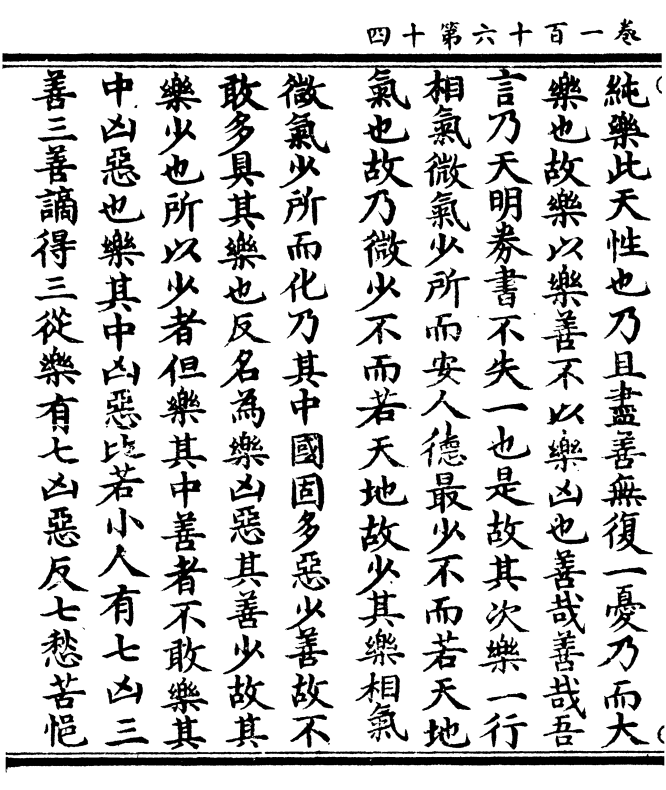 卷一百十六第十四
純樂此天性也乃且盡善無復一憂乃而大
樂也故樂以樂善不以樂凶也善哉善哉吾
言乃天明券書不失一也是故其次樂一行
相氣微氣少所而安人德最少不而若天地
氣也故乃微少不而若天地故少其樂相氣
微氣少所而化乃其中國固多惡少善故不
敢多具其樂也反名為樂凶惡其善少故其
樂少也所以少者但樂其中善者不敢樂其
中凶惡也樂其中凶惡比若小人有七凶三
善三善謫得三從樂有七凶惡反七愁苦悒